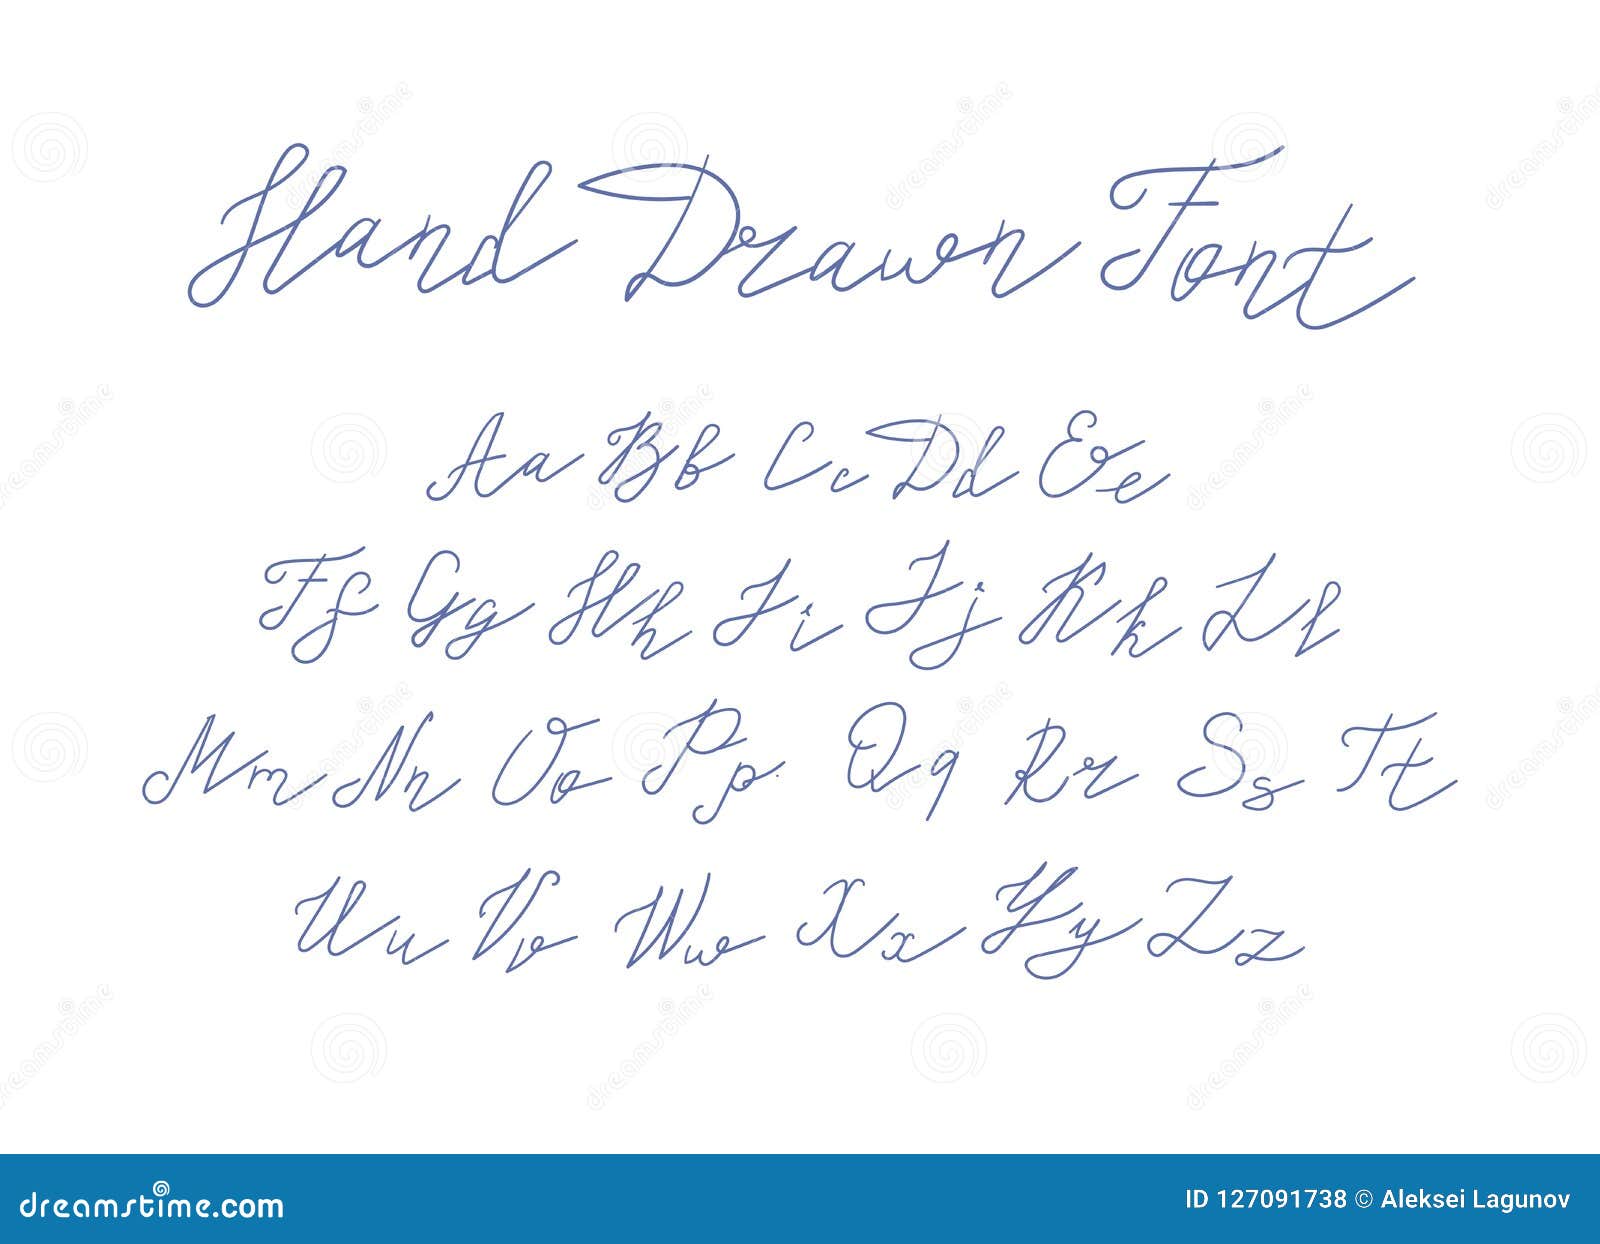 Hand Drawn Font
Aa Bb Cc Dd Ee
Ff Gg Hh Ii Jj Kk Ll
Mm Nn Oo Pp Qq Rr Ss Tt
Uu Vv Ww Xx Yy Zz
dreamstime.com
ID 127091738 © Aleksei Lagunov